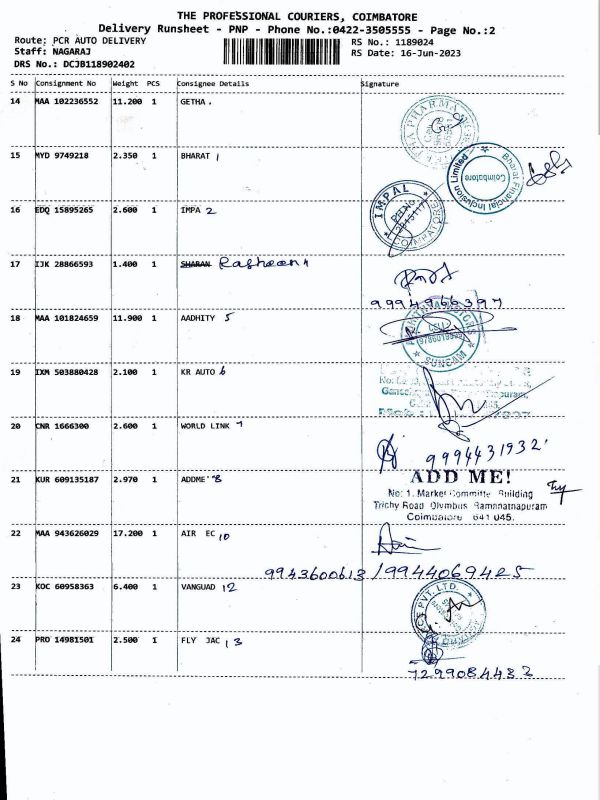 THE PROFESSIONAL COURIERS, COIMBATORE
Delivery Runsheet - PNP - Phone No.:0422-3505555 - Page No.:2
Route: PCR AUTO DELIVERY
RS No.: 1189024
Staff: NAGARAJ
RS Date: 16-Jun-2023
DRS No.: DCJB118902402
S No Consignment No Weight PCS Consignee Details Signature
14 MAA 102236552 11.200 1 GETHA .
15 MYD 9749218 2.350 1 BHARAT 1
Bharat Financial Inclusion Limited
Coimbatore
16 EDQ 15895265 2.600 1 IMPA 2
IMPAL
17 IJK 28866593 1.400 1 SHARAN
9994966397
18 MAA 101824659 11.900 1 AADHITY 5
SUNGAM
19 IXM 503880428 2.100 1 KR AUTO 6
20 CNR 1666300 2.600 1 WORLD LINK 7
9994431932
21 KUR 609135187 2.970 1 ADDME 8
ADD ME!
No: 1, Market Committe Building
Trichy Road Olymbus Ramanatnapuram
Coimbatore 641 045.
22 MAA 943626029 17.200 1 AIR EC 10
9943600613 / 9944069425
23 KOC 60958363 6.400 1 VANGUAD 12
PVT. LTD.
24 PRO 14981501 2.500 1 FLY JAC 13
7299084432